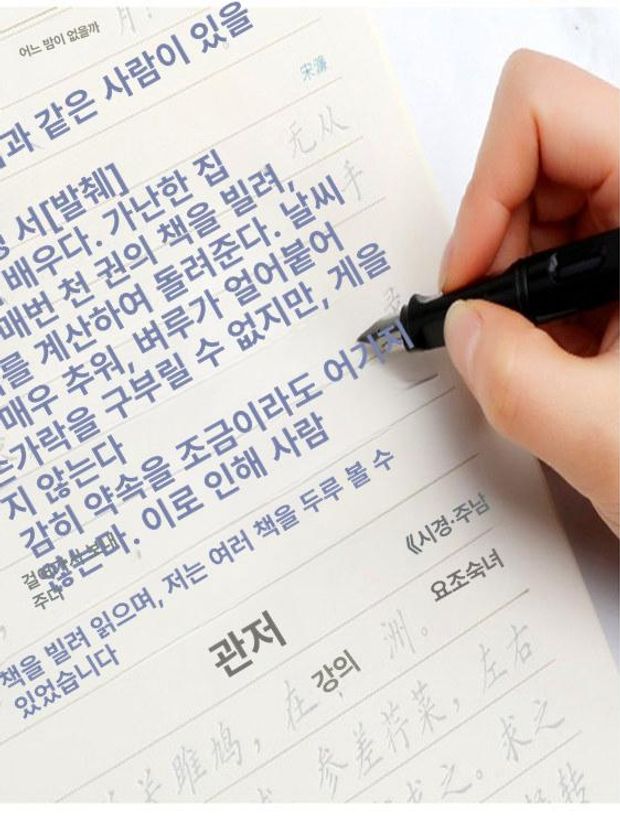 어느 밤이 없을까
月！
과 같은 사람이 있을
宋濂
无从
서[발췌]
배우다. 가난한 집
手
매번 천 권의 책을 빌려,
를 계산하여 돌려준다. 날씨
매우 추워, 벼루가 얼어붙어
가락을 구부릴 수 없지만, 게을
지 않는다
감히 약속을 조금이라도 어기지
않는다. 이로 인해 사람
걸
주다
책을 빌려 읽으며, 저는 여러 책을 두루 볼 수
있었습니다
《시경·주남
요조숙녀
관저
강의
洲。
关雎鸠，在
参差荇菜，左右
之。求之